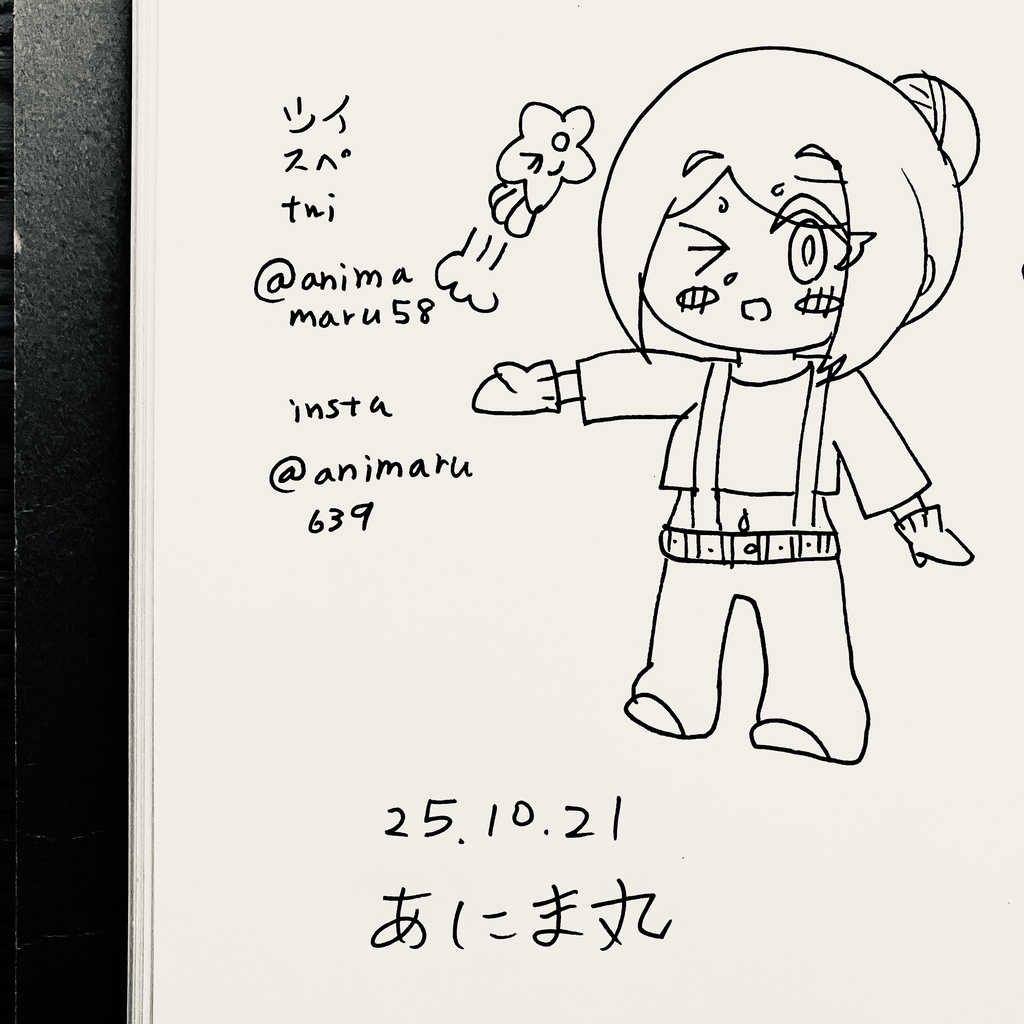 ツイ
スペ
tni
@anima
maru58
insta
@animaru
639
25.10.21
あにま丸